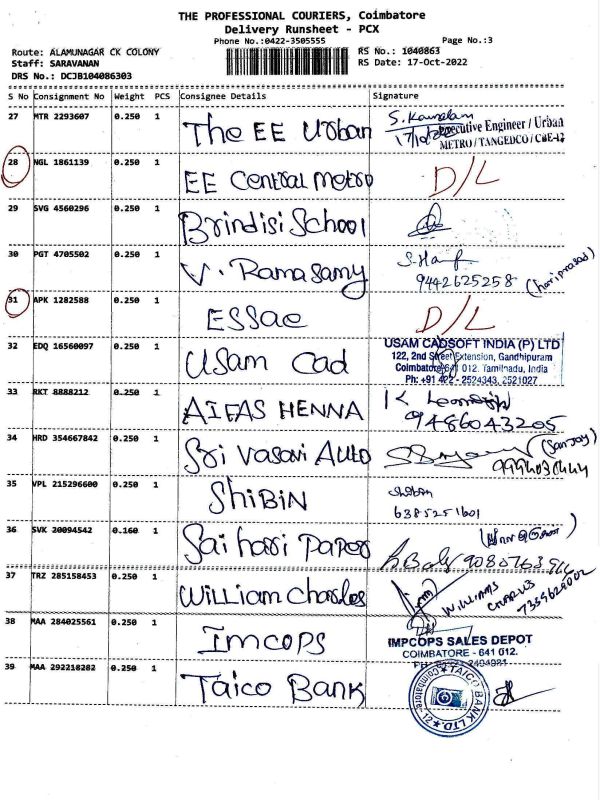 THE PROFESSIONAL COURIERS, Coimbatore
Delivery Runsheet - PCX
Phone No.:0422-3505555 Page No.:3
Route: ALAMUNAGAR CK COLONY RS No.: 1040863
Staff: SARAVANAN RS Date: 17-Oct-2022
DRS No.: DCJB104086303
S No Consignment No Weight PCS Consignee Details Signature
27 MTR 2293607 0.250 1 The EE Urban
Executive Engineer / Urban
METRO / TANGEDCO / CBE-12
28 NGL 1861139 0.250 1 EE Central Metro D/L
29 SVG 4560296 0.250 1 Brindisi School
30 PGT 4705502 0.250 1 V. Ramasamy
9442625258 (hariprasad)
31 APK 1282588 0.250 1 ESSae D/L
32 EDQ 16560097 0.250 1 Usam Cad
USAM CADSOFT INDIA (P) LTD
122, 2nd Street Extension, Gandhipuram
Coimbatore 641 012. Tamilnadu, India
Ph: +91 422 - 2524343, 2521027
33 RKT 8888212 0.250 1 AIFAS HENNA
9486043205
34 HRD 354667842 0.250 1 Sri Vasavi Auto (Sanjay)
35 VPL 215296600 0.250 1 ShiBIN
6385251601
36 SVK 20094542 0.160 1 Sai hari Paper
37 TRZ 285158453 0.250 1 William Charles
WILLIAMS
CHARLES
38 MAA 284025561 0.250 1 Imcops
IMPCOPS SALES DEPOT
COIMBATORE - 641 012.
39 MAA 292218282 0.250 1 Taico Bank
TAICO BANK LTD. Coimbatore-12